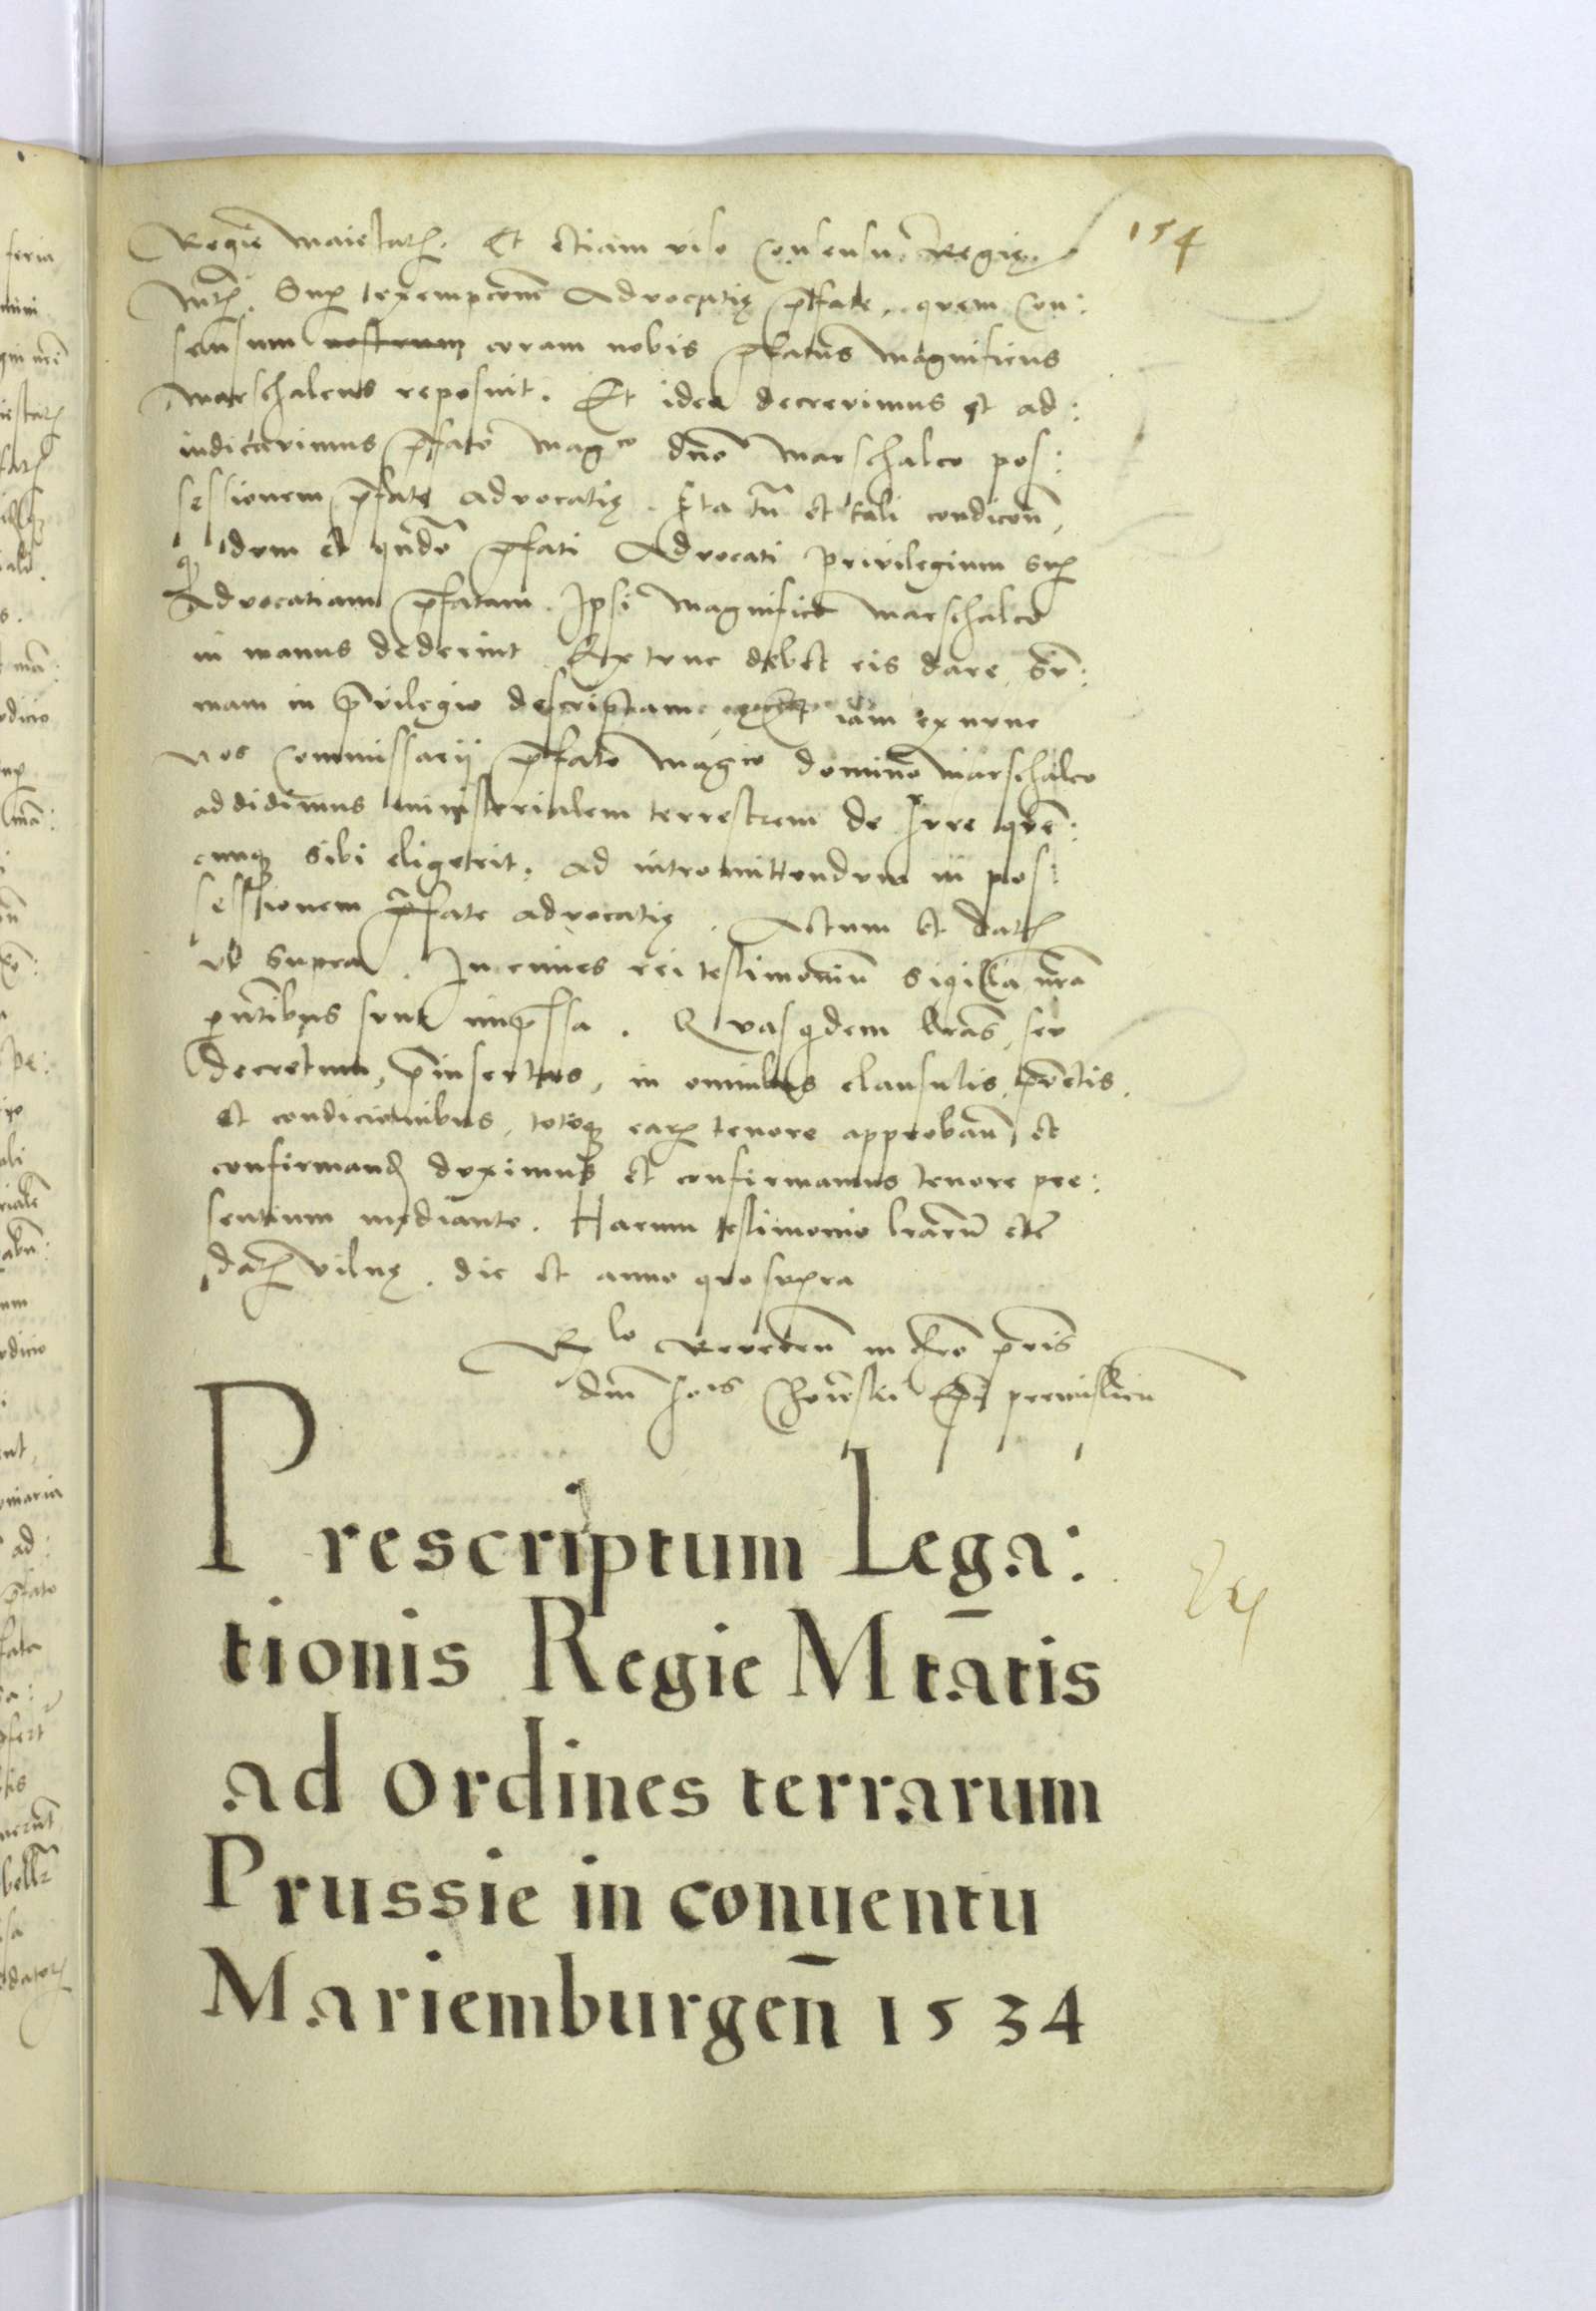 154
Regie Maiestatis. Et etiam viso Consensu Regię
Mtis. Sup exempcom Advocatię pfate, quem Con:
sensum nostrum coram nobis pfatus Magnificus
Marschalcus reposuit. Et ideo decrevimus et ad:
iudicavimus pfato Magco dno Marschalco pos:
sessionem pfatę advocatię. Ita tn et tali condicon,
q dum et qndo pfati Advocati privilegium sup
Advocatiam pfatam. Ipsi Magnifico Marschalco
in manus dederint. Ex tunc debet eis dare sū:
mam in privilegio descriptam, iam ex nunc
Nos Commissarij pfato Magco domino Marschalco
addidimus ministerialem terrestrem de Jure quē:
cunq sibi eligerit, ad intromittendum in pos:
sessionem pfate advocatię. Actum et dat
ut supra. In cuius rei testimoniū sigilla nra
pntibus sunt impssa. Quasquidem lras seu
decretum, pinsertas, in omnibus clausulis, punctis,
et condicionibus, totoq earum tenore approband et
confirmand duximus et confirmamus tenore pre:
sentium mediante. Harum testimonio lrarū etc
dat Vilnę. die et anno quo supra
Rlo Reveren in Xro pris
dni Jois Choienski Epi premislien
Prescriptum Lega:
tionis Regie Mtātis
ad ordines terrarum
Prussie in conuentu
Mariemburgen̄ 1534